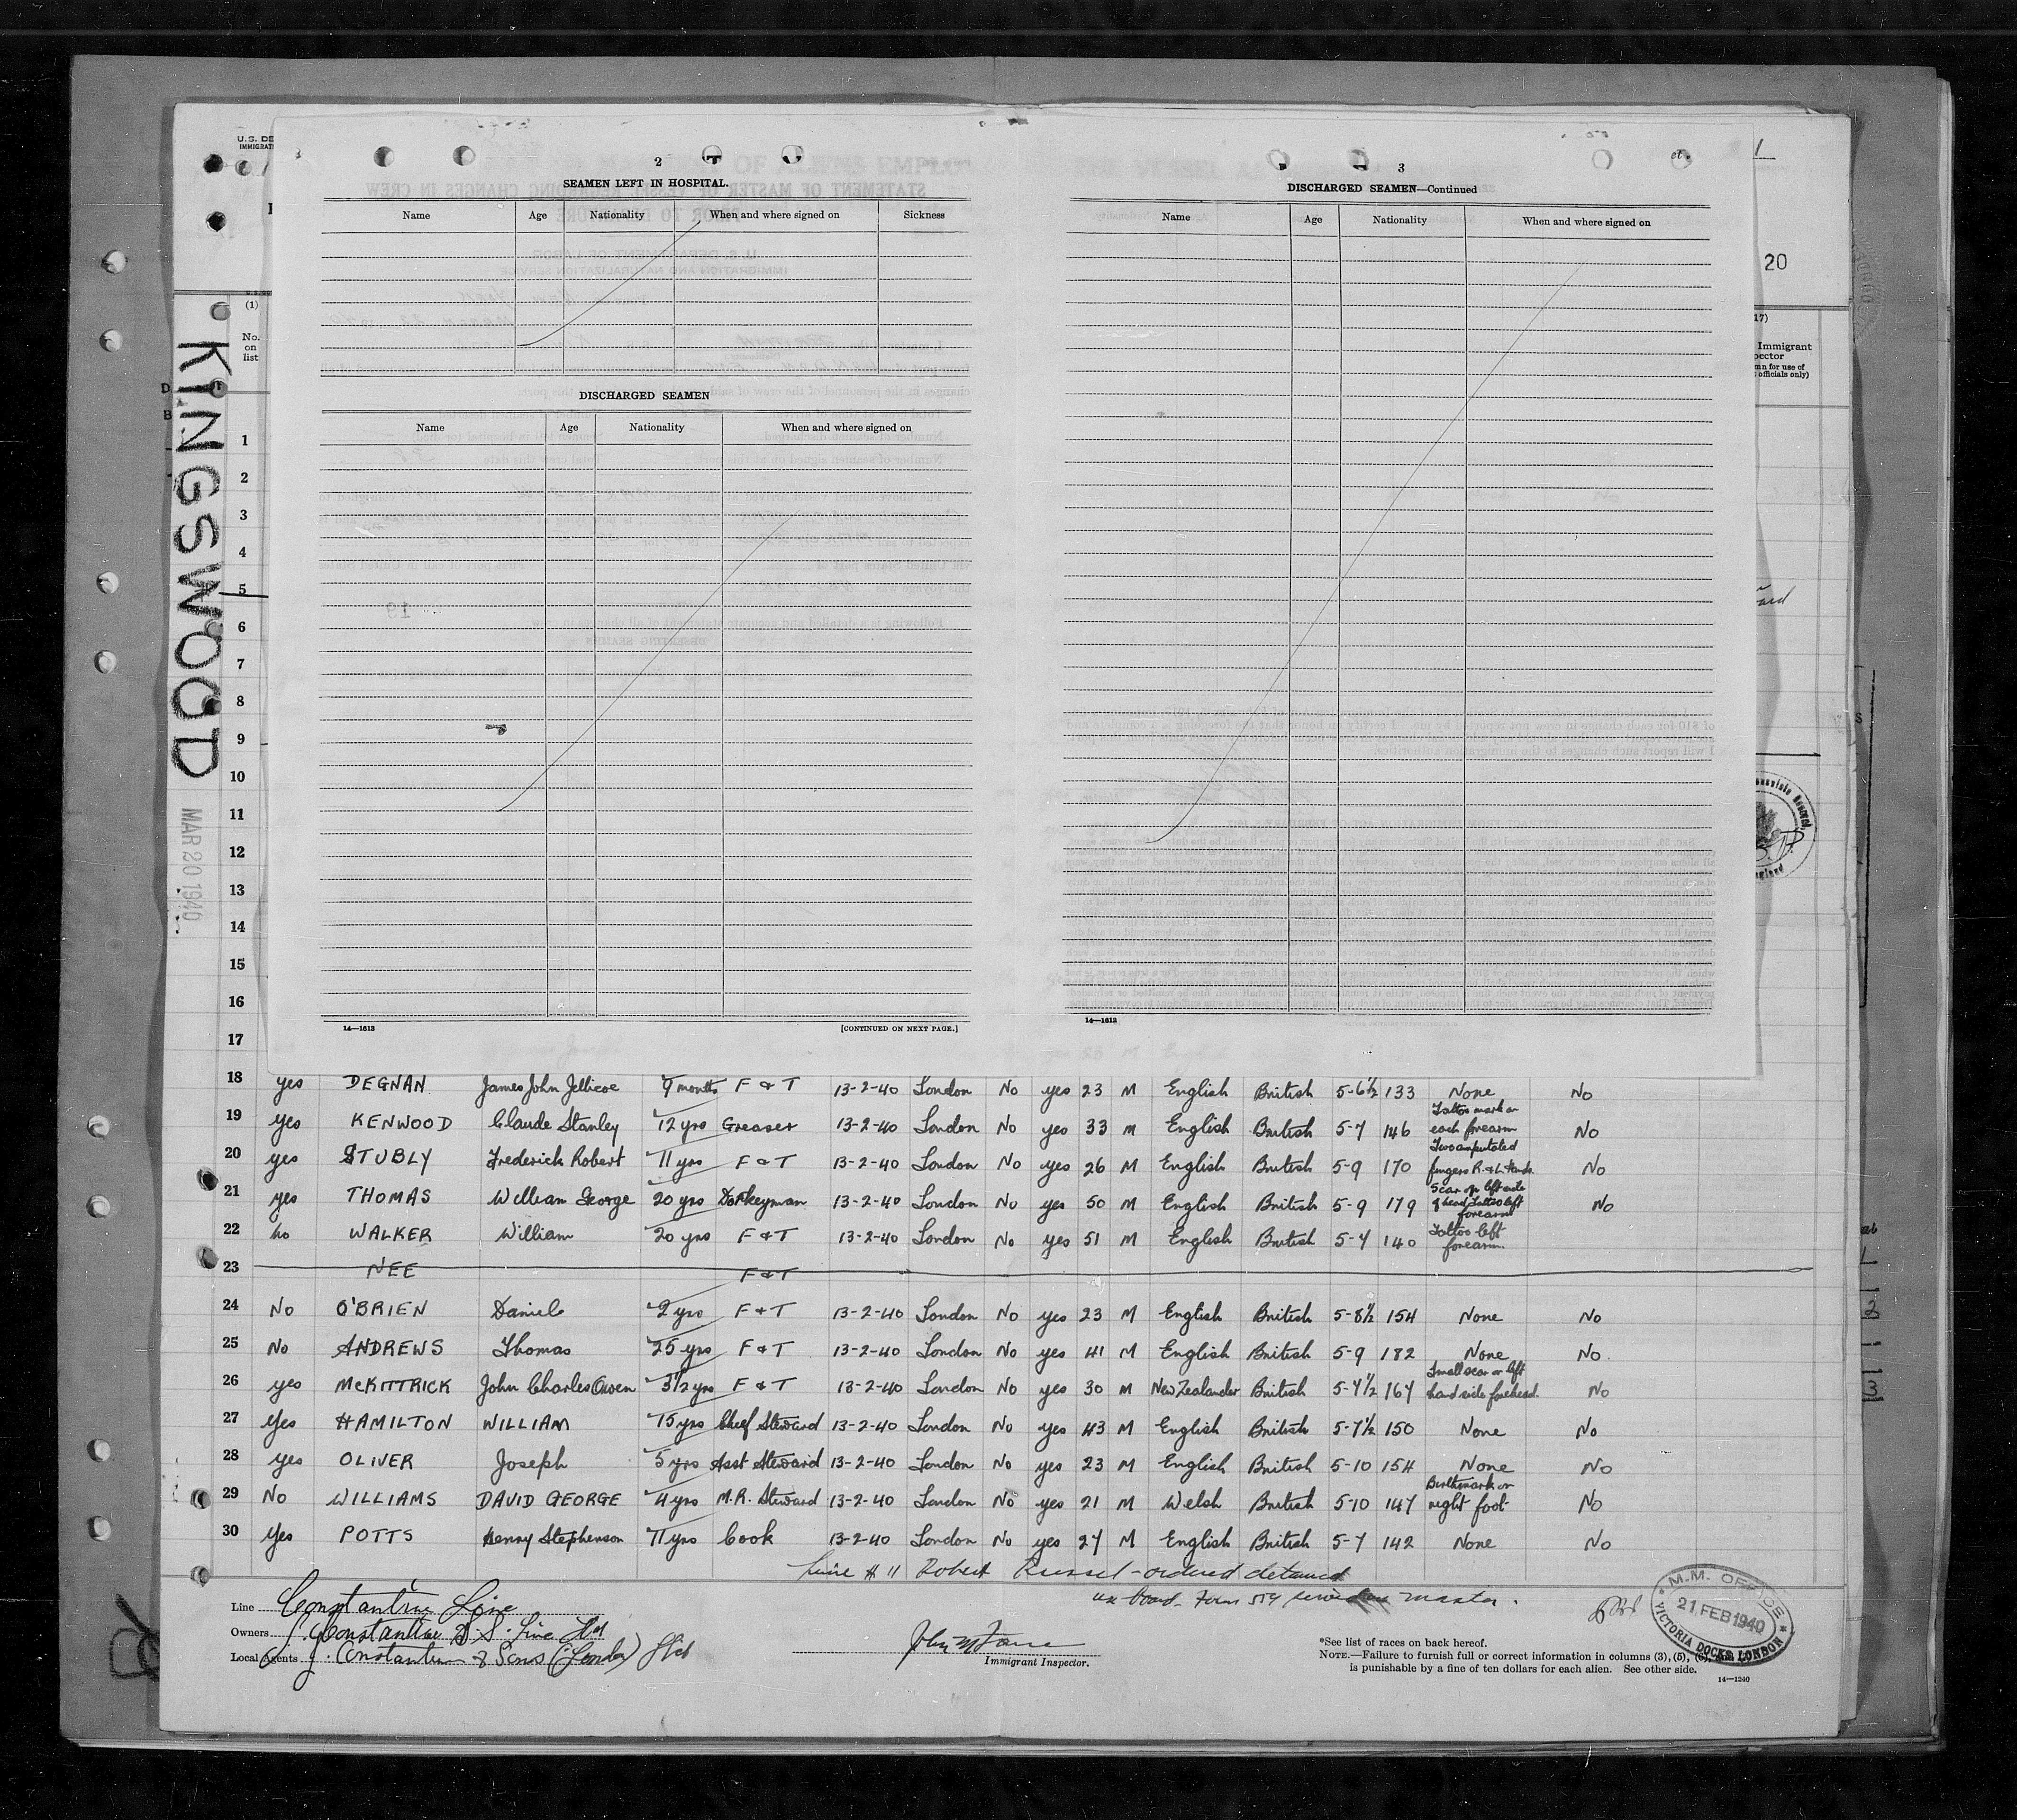 U.S. DE
IMMIGRAT
2
SEAMEN LEFT IN HOSPITAL.
Name Age Nationality When and where signed on Sickness
DISCHARGED SEAMEN
Name Age Nationality When and where signed on
14—1613 [CONTINUED ON NEXT PAGE.]
3
DISCHARGED SEAMEN—Continued
Name Age Nationality When and where signed on
14—1613
1
20
17)
Immigrant
pector
mn for use of
officials only)
(1)
No.
on
list
KINGSWOOD
MAR 20 1940
1
2
3
4
5
6
7
8
9
10
11
12
13
14
15
16
17
18 yes DEGNAN James John Jellicoe 9 months F & T 13-2-40 London No yes 23 M English British 5-6½ 133 None No
19 yes KENWOOD Claude Stanley 12 yrs Greaser 13-2-40 London No yes 33 M English British 5-7 146 Tattoo mark on each forearm No
20 yes STUBLY Frederick Robert 11 yrs F & T 13-2-40 London No yes 26 M English British 5-9 170 Two amputated fingers R. & L. Hands No
21 yes THOMAS William George 20 yrs Donkeyman 13-2-40 London No yes 50 M English British 5-9 179 Scar on left side of head Tattoo left forearm No
22 no WALKER William 20 yrs F & T 13-2-40 London No yes 51 M English British 5-4 140 Tattoo left forearm
23 NEE F & T
24 No O'BRIEN Daniel 2 yrs F & T 13-2-40 London No yes 23 M English British 5-8½ 154 None No
25 No ANDREWS Thomas 25 yrs F & T 13-2-40 London No yes 41 M English British 5-9 182 None No
26 yes McKITTRICK John Charles Owen 3½ yrs F & T 13-2-40 London No yes 30 M New Zealander British 5-7½ 164 Small scar on left hand side forehead No
27 Yes HAMILTON WILLIAM 15 yrs Chief Steward 13-2-40 London No yes 43 M English British 5-7½ 150 None No
28 yes OLIVER Joseph 5 yrs Asst Steward 13-2-40 London No yes 23 M English British 5-10 154 None No
29 No WILLIAMS DAVID GEORGE 4 yrs M.R. Steward 13-2-40 London No yes 21 M Welsh British 5-10 147 Birthmark on right foot No
30 Yes POTTS Henry Stephenson 11 yrs Cook 13-2-40 London No yes 27 M English British 5-7 142 None No
Line # 11 Robert Russel - ordered detained
on board. Form 519 served on master.
Line Constantine Line
Owners Constantine S.S. Line Ltd
Local Agents J. Constantine & Sons (London) Ltd
Immigrant Inspector.
*See list of races on back hereof.
NOTE.—Failure to furnish full or correct information in columns (3), (5), (6),
is punishable by a fine of ten dollars for each alien. See other side.
14—1240
M.M. OFFICE
21 FEB 1940
VICTORIA DOCKS LONDON